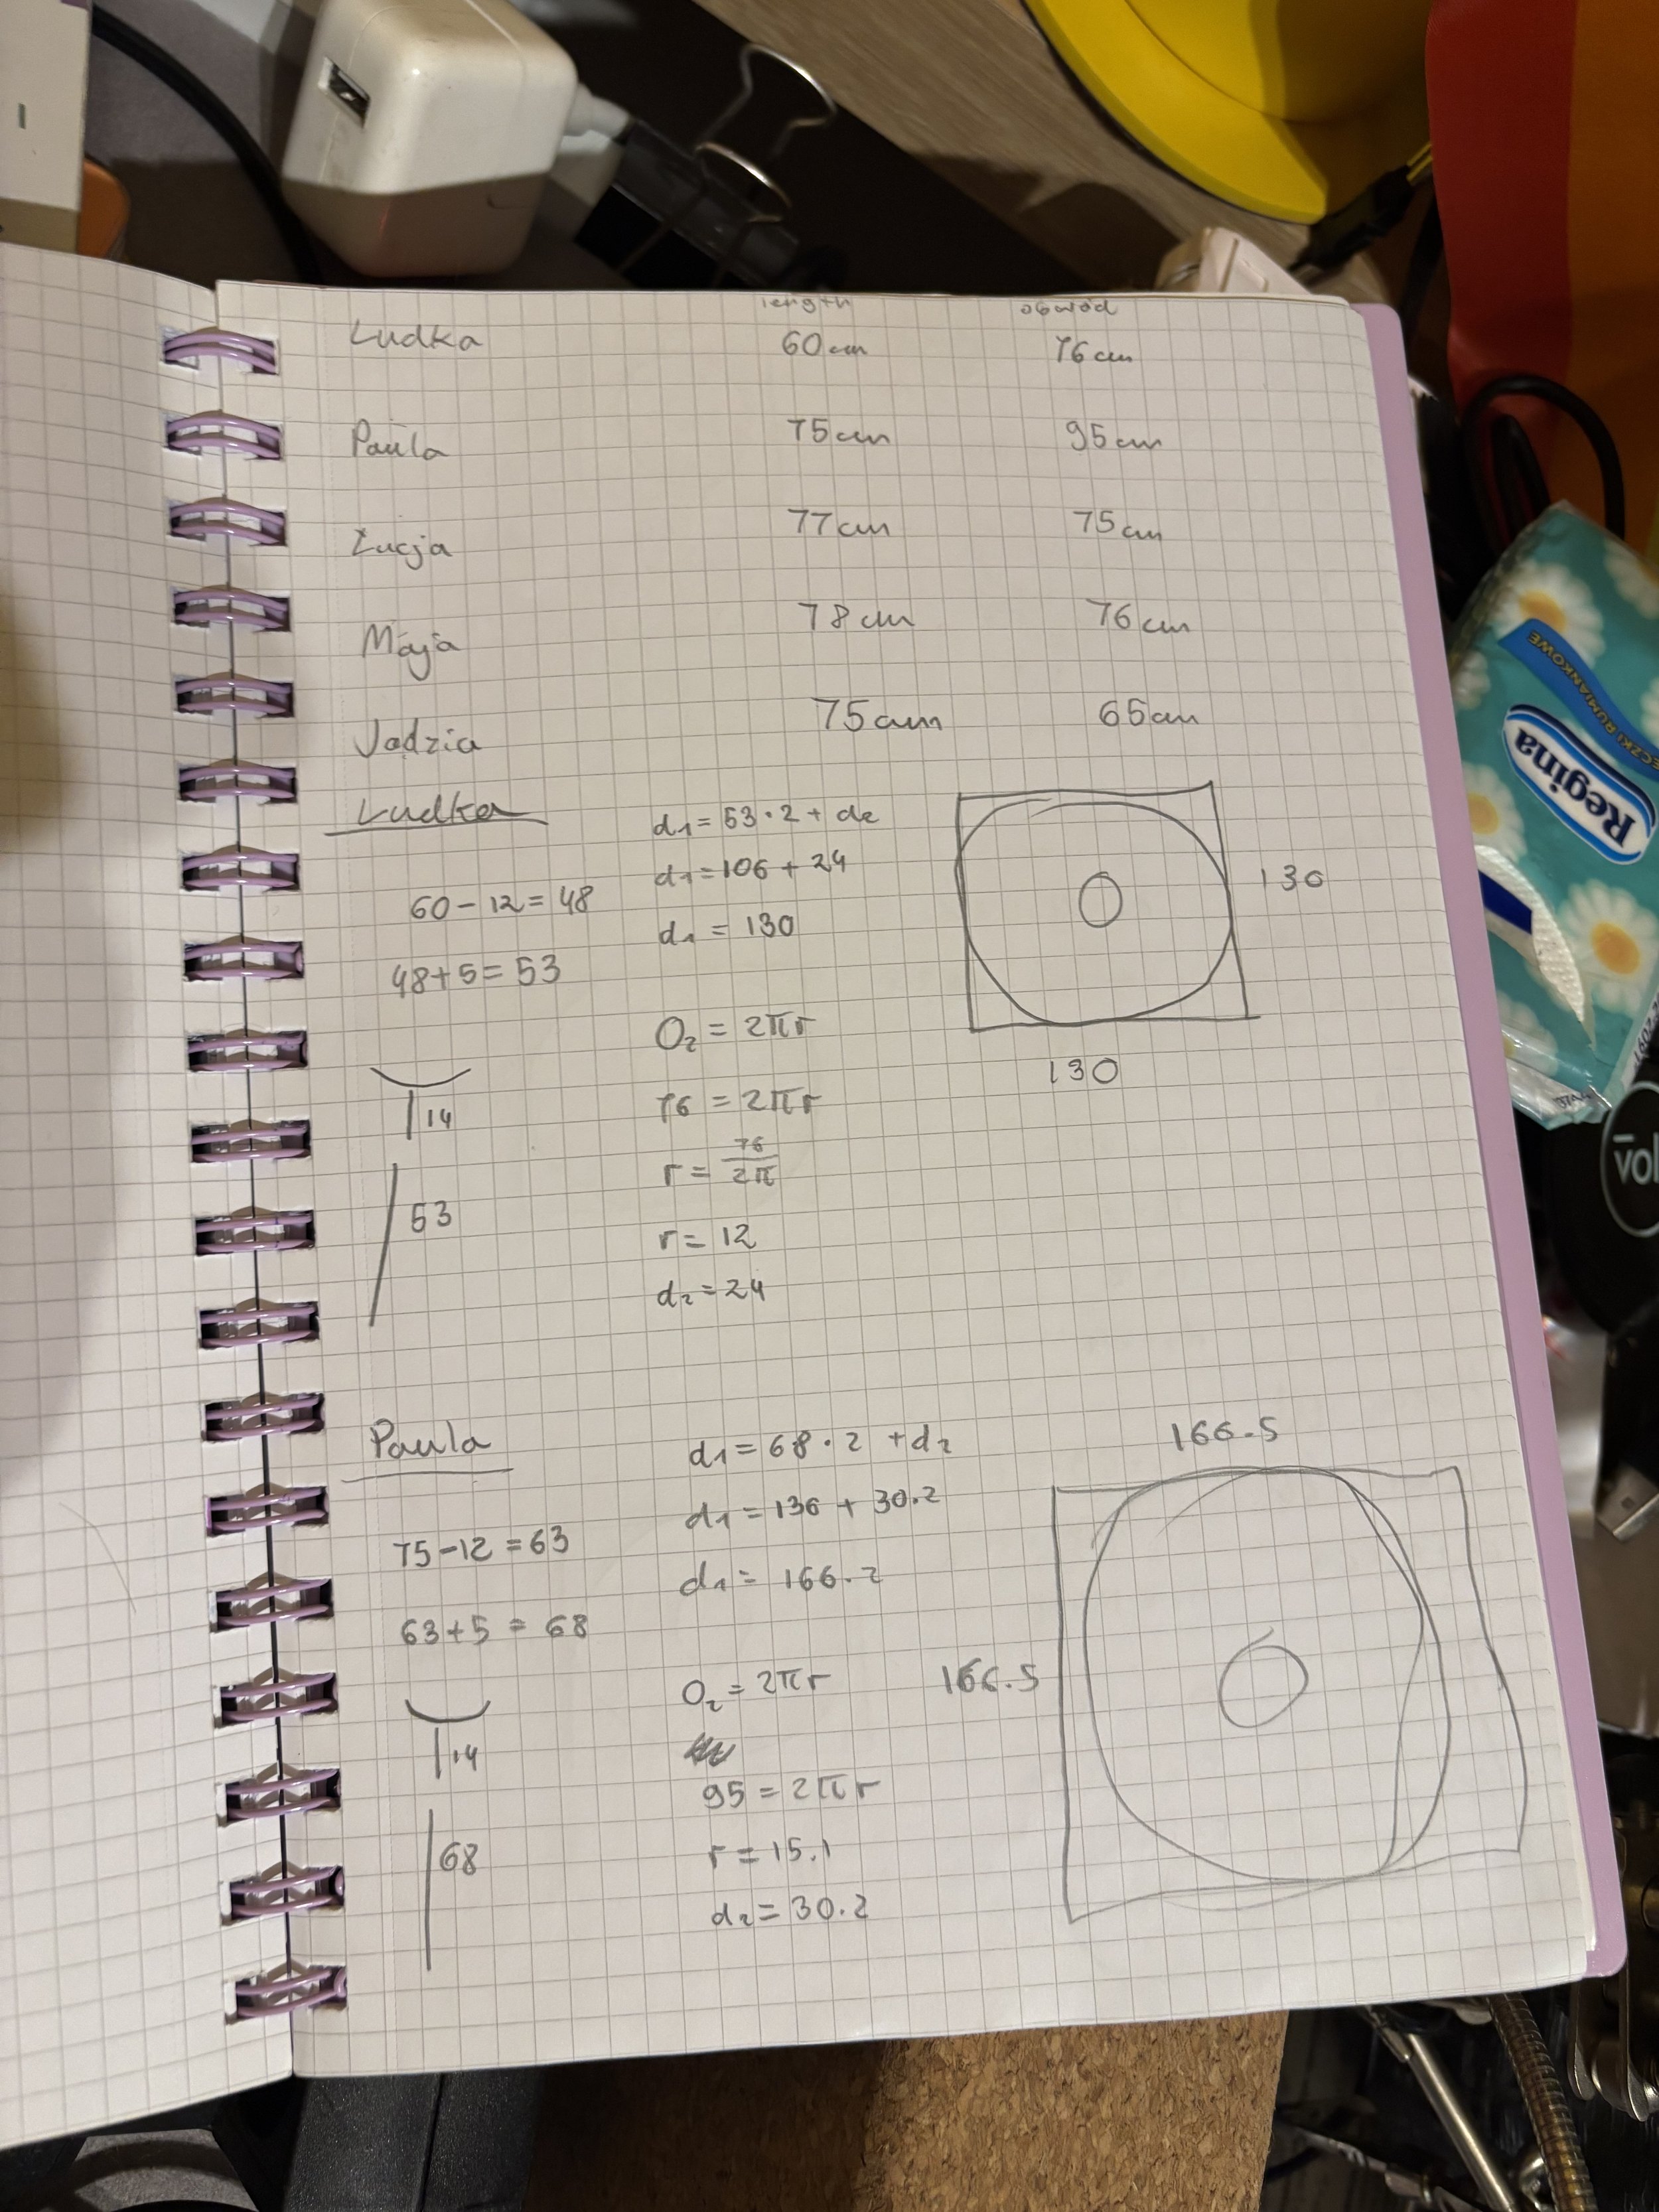 length obwód
Ludka 60cm 76cm
Paula 75cm 95cm
Łucja 77cm 75cm
Maja 78cm 76cm
Jadzia 75cm 65cm
Ludka
60-12=48
48+5=53
14
53
d1=53·2+d2
d1=106+24
d1=130
O2=2πr
76=2πr
r=76/2π
r=12
d2=24
130
130
Paula
75-12=63
63+5=68
14
68
d1=68·2+d2
d1=136+30.2
d1=166.2
O2=2πr
95=2πr
r=15.1
d2=30.2
166.5
166.5
Regina
RUMIANKOWE
vol